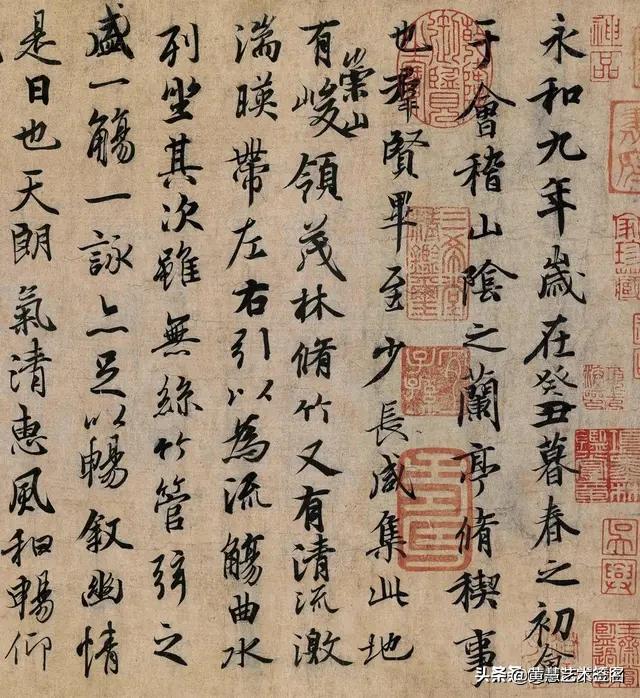 永和九年歲在癸丑暮春之初會
于會稽山陰之蘭亭脩稧事
也羣賢畢至少長咸集此地
有崇山峻領茂林脩竹又有清流激
湍暎帶左右引以為流觴曲水
列坐其次雖無絲竹管弦之
盛一觴一詠亦足以暢敘幽情
是日也天朗氣清惠風和暢仰
神品
家珍藏
三希堂精鑑璽
宜子孫
吳興
头条 @黄慧艺术签图